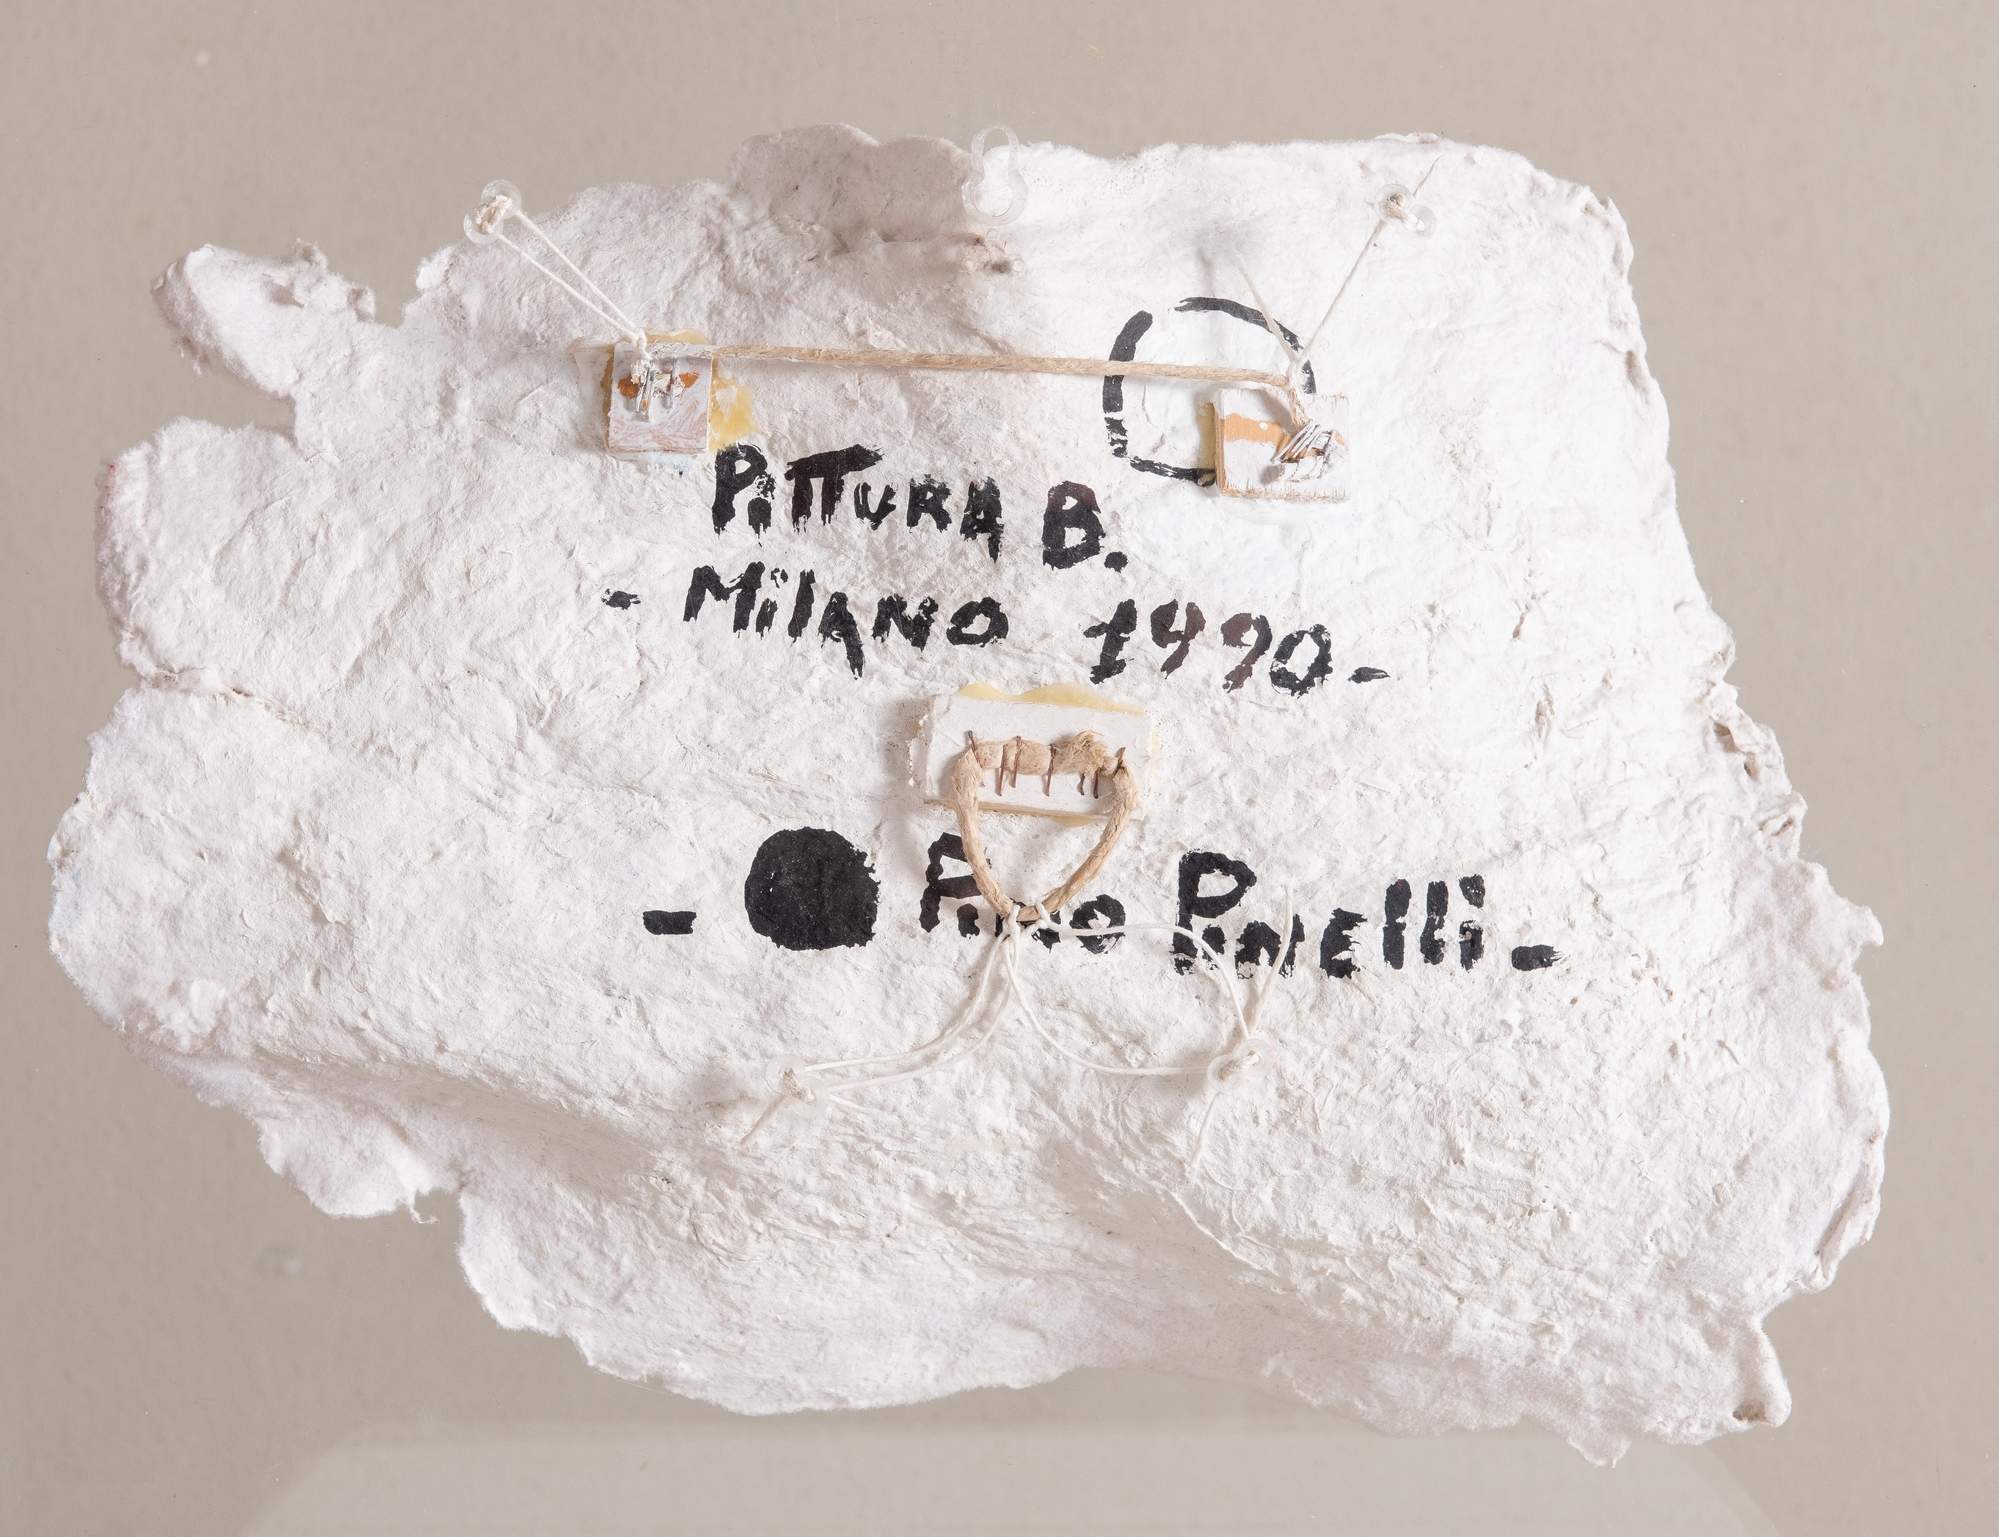 PiTTURA B.
- MilANO 1990 -
- ● PiNo PiNElli -